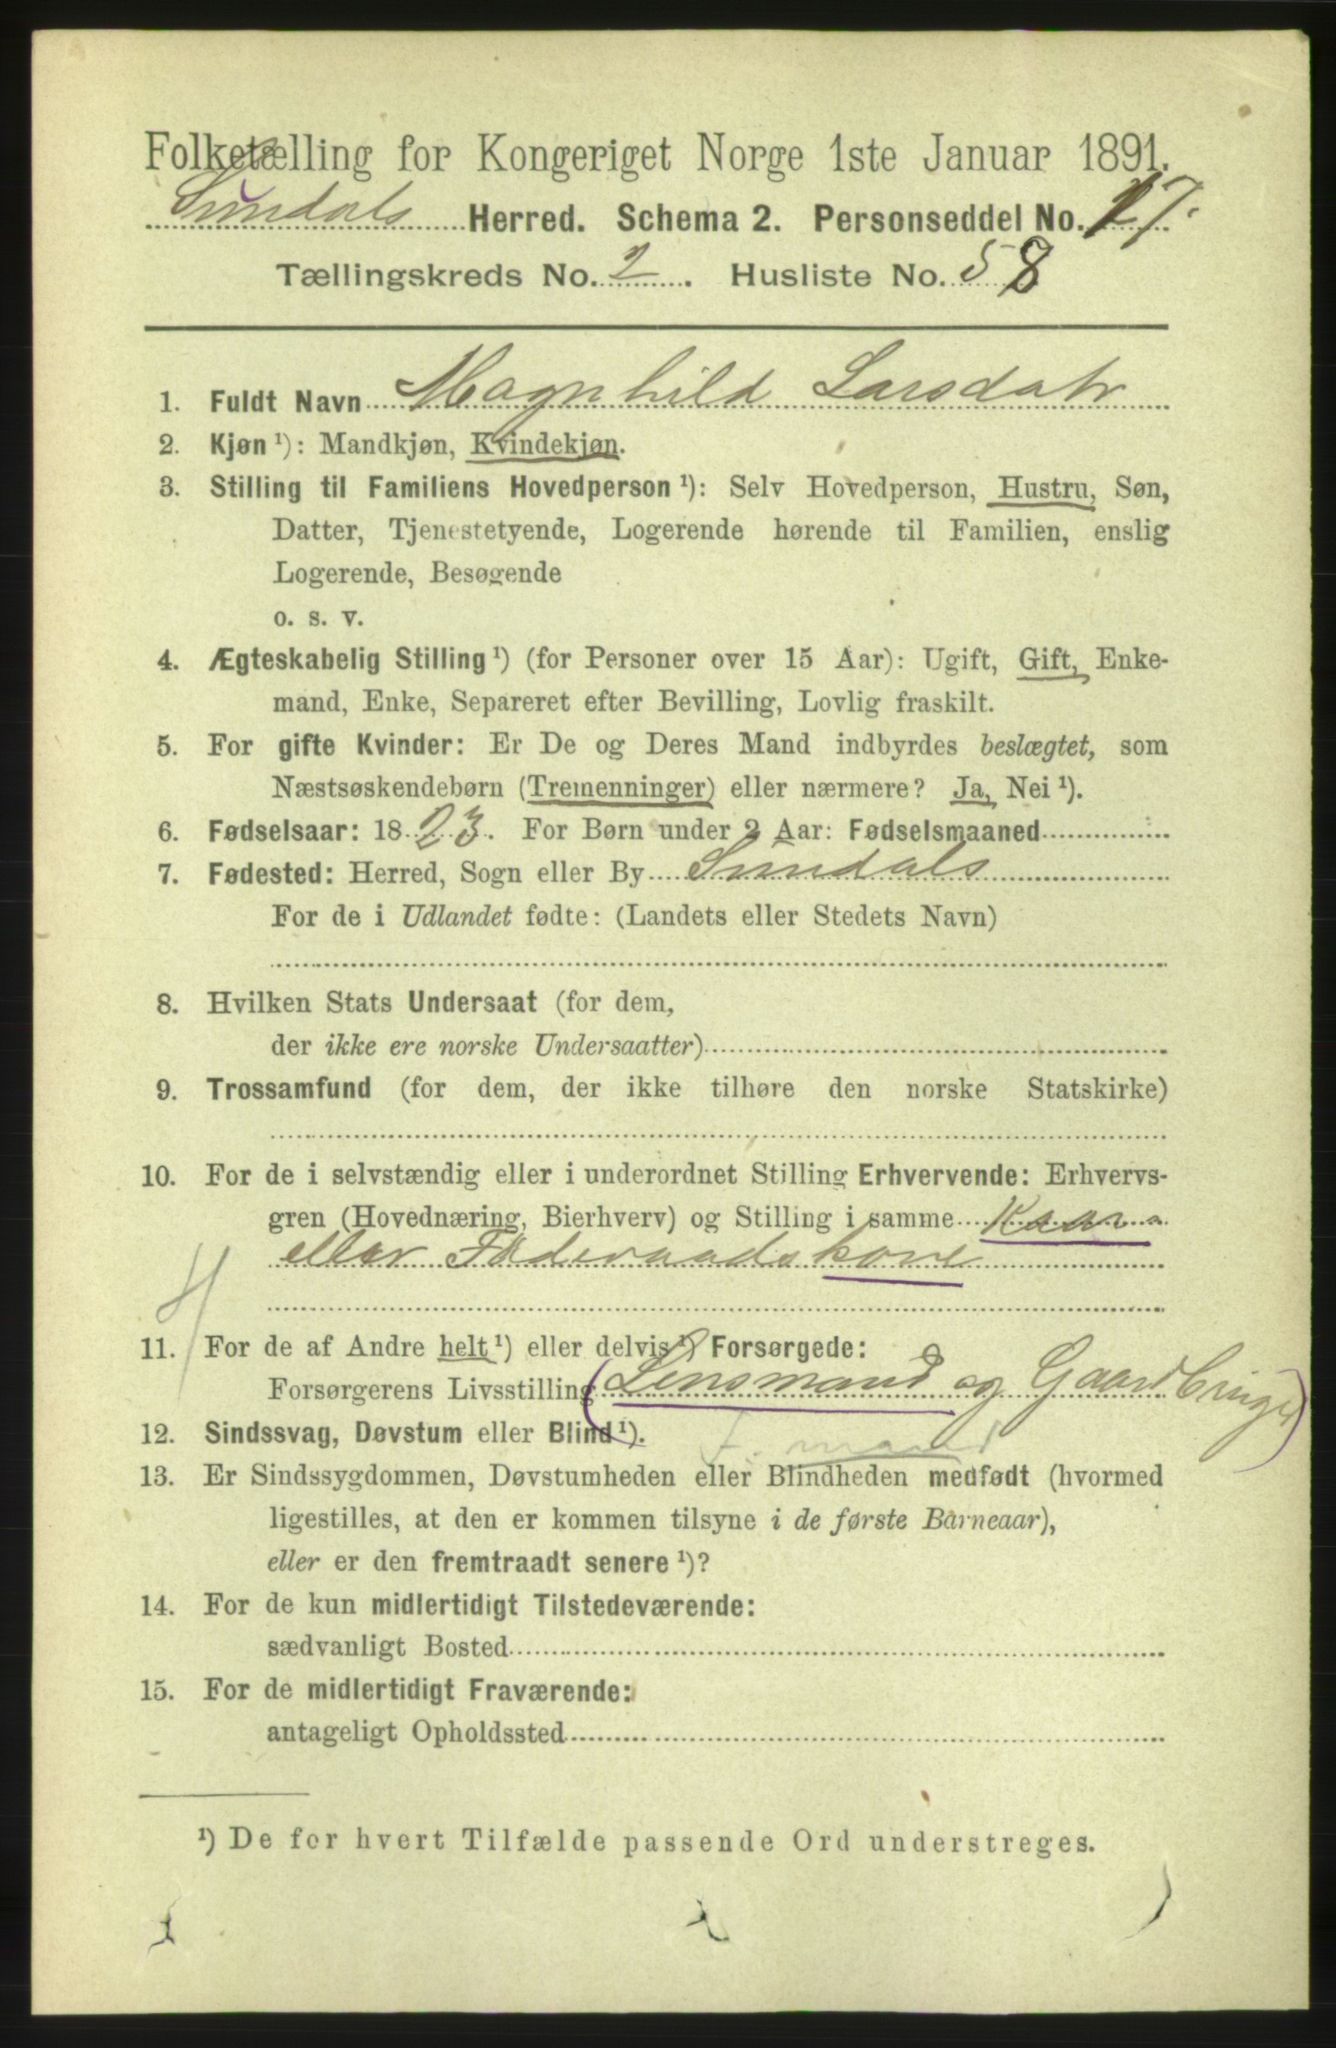 Folketælling for Kongeriget Norge 1ste Januar 1891.
Sundals Herred. Schema 2. Personseddel No. 17.
Tællingskreds No. 2. Husliste No. 58
1. Fuldt Navn Magnhild Larsdatr
2. Kjøn ¹): Mandkjøn, Kvindekjøn.
3. Stilling til Familiens Hovedperson ¹): Selv Hovedperson, Hustru, Søn,
Datter, Tjenestetyende, Logerende hørende til Familien, enslig
Logerende, Besøgende
o. s. v.
4. Ægteskabelig Stilling ¹) (for Personer over 15 Aar): Ugift, Gift, Enke-
mand, Enke, Separeret efter Bevilling, Lovlig fraskilt.
5. For gifte Kvinder: Er De og Deres Mand indbyrdes beslægtet, som
Næstsøskendebørn (Tremenninger) eller nærmere? Ja, Nei ¹).
6. Fødselsaar: 1823. For Børn under 2 Aar: Fødselsmaaned
7. Fødested: Herred, Sogn eller By Sundals
For de i Udlandet fødte: (Landets eller Stedets Navn)
8. Hvilken Stats Undersaat (for dem,
der ikke ere norske Undersaatter)
9. Trossamfund (for dem, der ikke tilhøre den norske Statskirke)
10. For de i selvstændig eller i underordnet Stilling Erhvervende: Erhvervs-
gren (Hovednæring, Bierhverv) og Stilling i samme Kaar
eller Føderaadskone
11. For de af Andre helt ¹) eller delvis ¹) Forsørgede:
Forsørgerens Livsstilling (Lensmand og Gaardbruger)
12. Sindssvag, Døvstum eller Blind ¹).
f. mand
13. Er Sindssygdommen, Døvstumheden eller Blindheden medfødt (hvormed
ligestilles, at den er kommen tilsyne i de første Barneaar),
eller er den fremtraadt senere ¹)?
14. For de kun midlertidigt Tilstedeværende:
sædvanligt Bosted
15. For de midlertidigt Fraværende:
antageligt Opholdssted
¹) De for hvert Tilfælde passende Ord understreges.